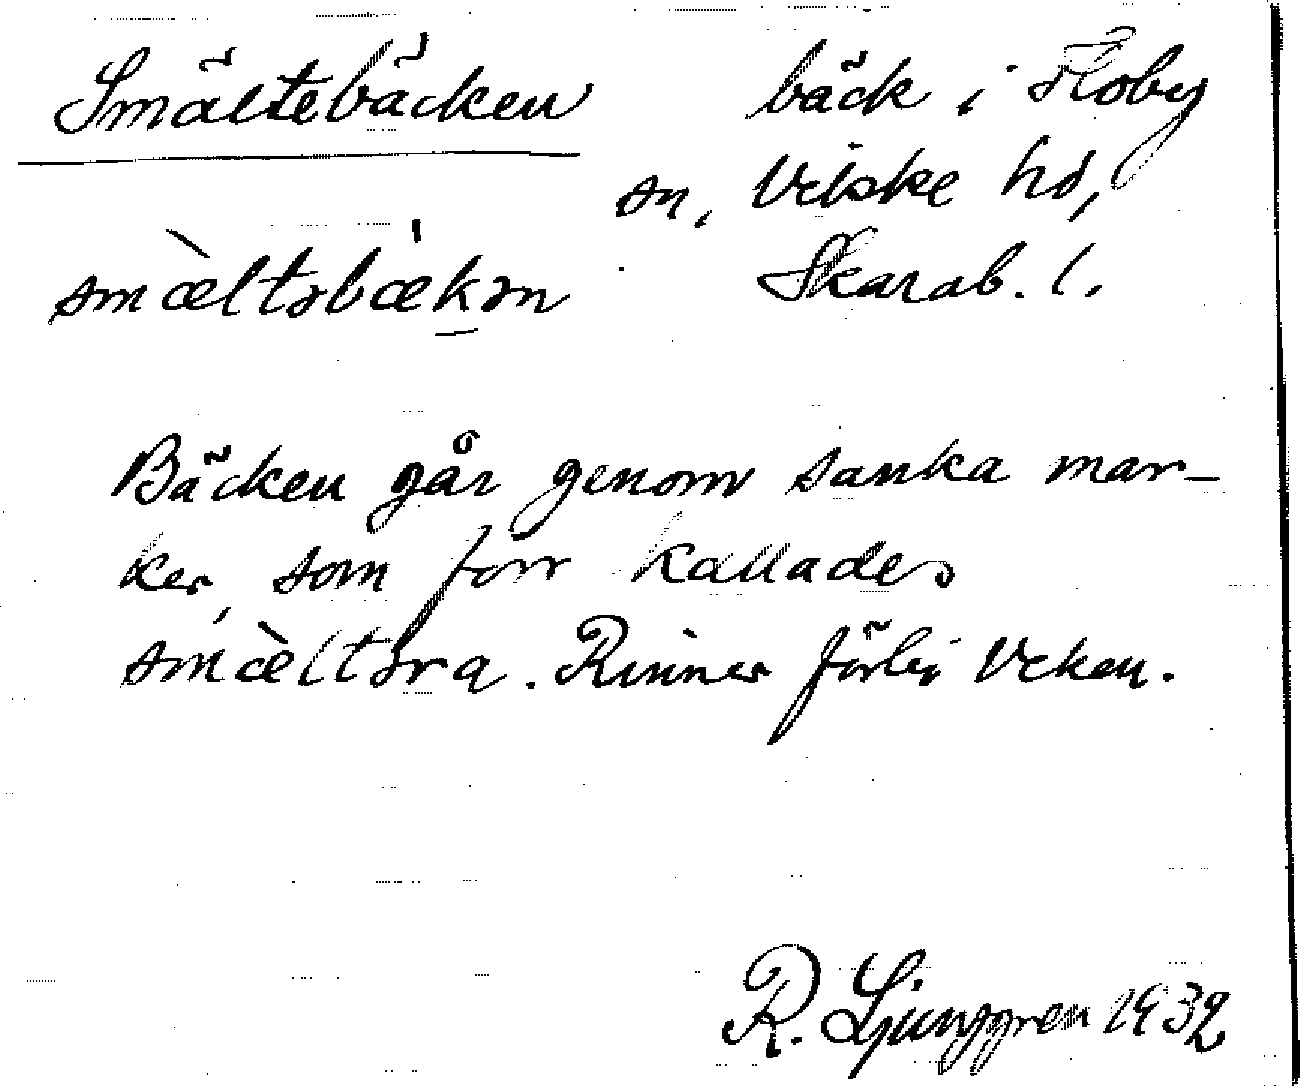 Smältebäcken bäck i Floby
sn, Vilske hd,
smæ̀ltəbækən Skarab. l.
Bäcken går genom sanka mar-
ker, som förr kallades
smæ̀ltəra. Rinner förbi Veken.
R. Ljunggren 1932